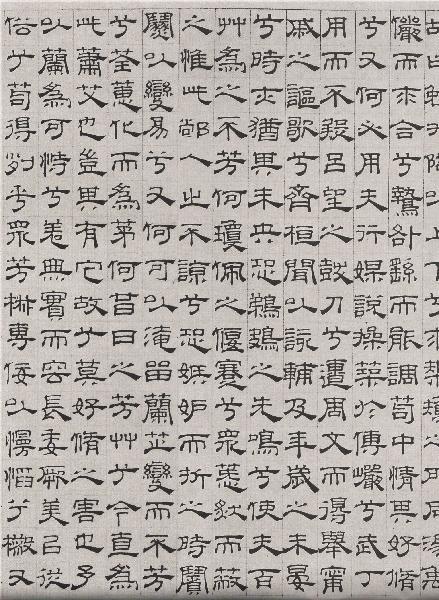 儼而求合兮摯咎繇而能調苟中情其好脩
兮又何必用夫行媒說操築於傅巖兮武丁
用而不疑呂望之鼓刀兮遭周文而得舉甯
戚之謳歌兮齊桓聞以該輔及年歲之未晏
兮時亦猶其未央恐鵜鴂之先鳴兮使夫百
艸為之不芳何瓊佩之偃蹇兮眾薆然而蔽
之惟此䣊人之不諒兮恐嫉妒而折之時
以變易兮又何可以淹留蘭芷變而不芳
兮荃蕙化而為茅何昔日之芳艸兮今直為
此蕭艾也豈其有它故兮莫好脩之害也予
以蘭為可恃兮羌無實而容長委厥美以從
俗兮苟得列乎眾芳椒專佞以慢慆兮樧又